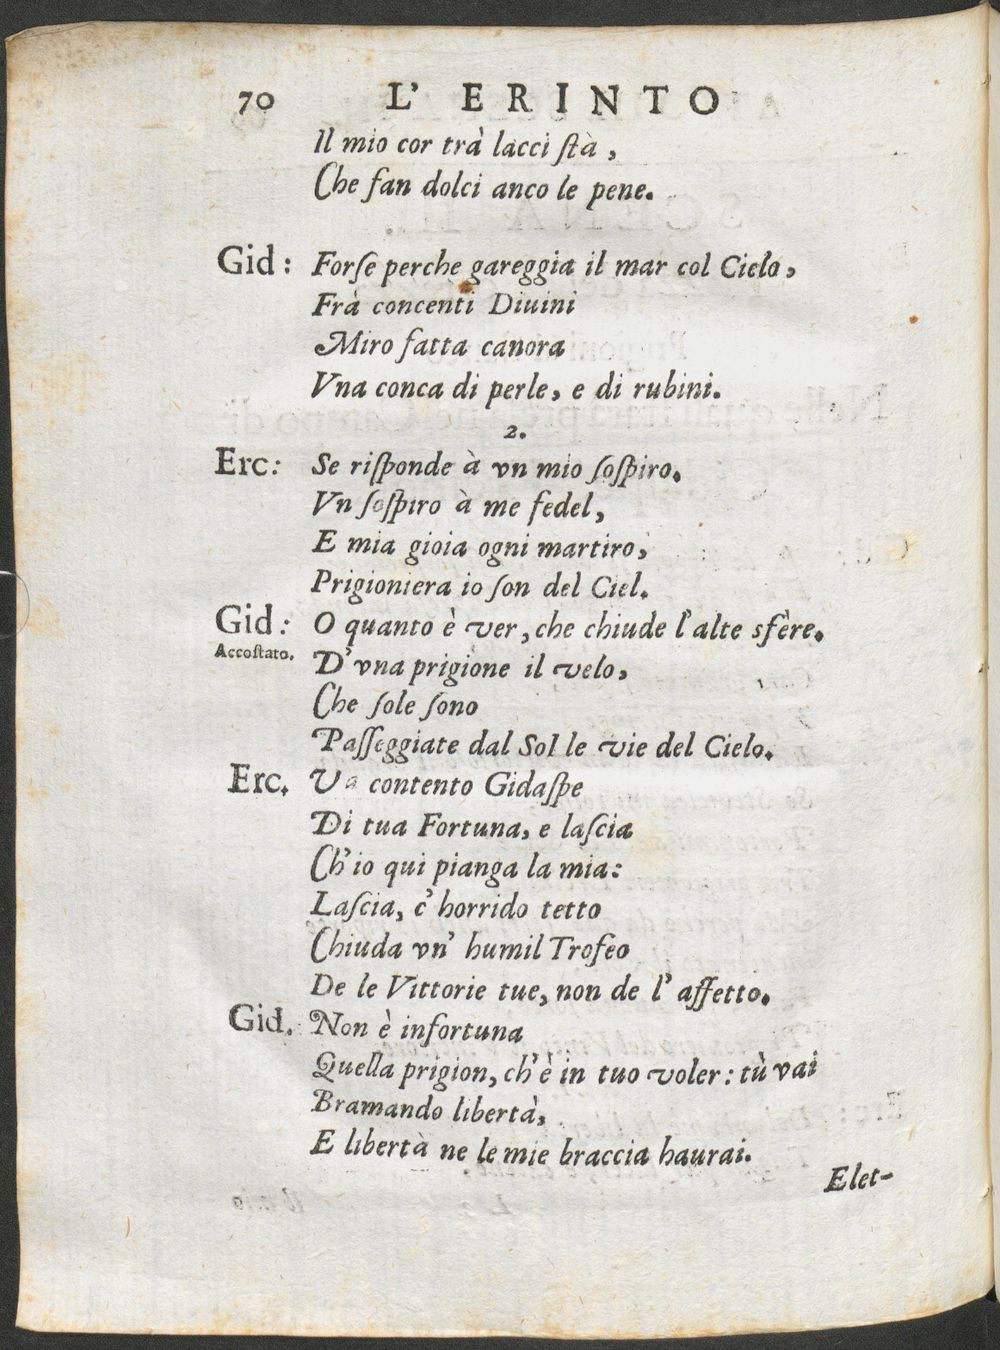 70 L' ERINTO
Il mio cor trà lacci ſtà ,
Che fan dolci anco le pene.
Gid : Forſe perche gareggia il mar col Cielo,
Frà concenti Diuini
Miro fatta canora
Vna conca di perle, e di rubini.
2.
Erc: Se riſponde à vn mio ſoſpiro.
Vn ſoſpiro à me fedel,
E mia gioia ogni martiro,
Prigioniera io ſon del Ciel.
Gid : O quanto è ver, che chiude l'alte sfère.
Accoſtato. D'vna prigione il velo,
Che ſole ſono
Paſſeggiate dal Sol le vie del Cielo.
Erc. Va contento Gidaſpe
Di tua Fortuna, e laſcia
Ch'io qui pianga la mia:
Laſcia, c' horrido tetto
Chiuda vn' humil Trofeo
De le Vittorie tue, non de l' affetto.
Gid. Non è infortuna
Quella prigion, ch'è in tuo voler : tù vai
Bramando libertà,
E libertà ne le mie braccia haurai.
Elet-